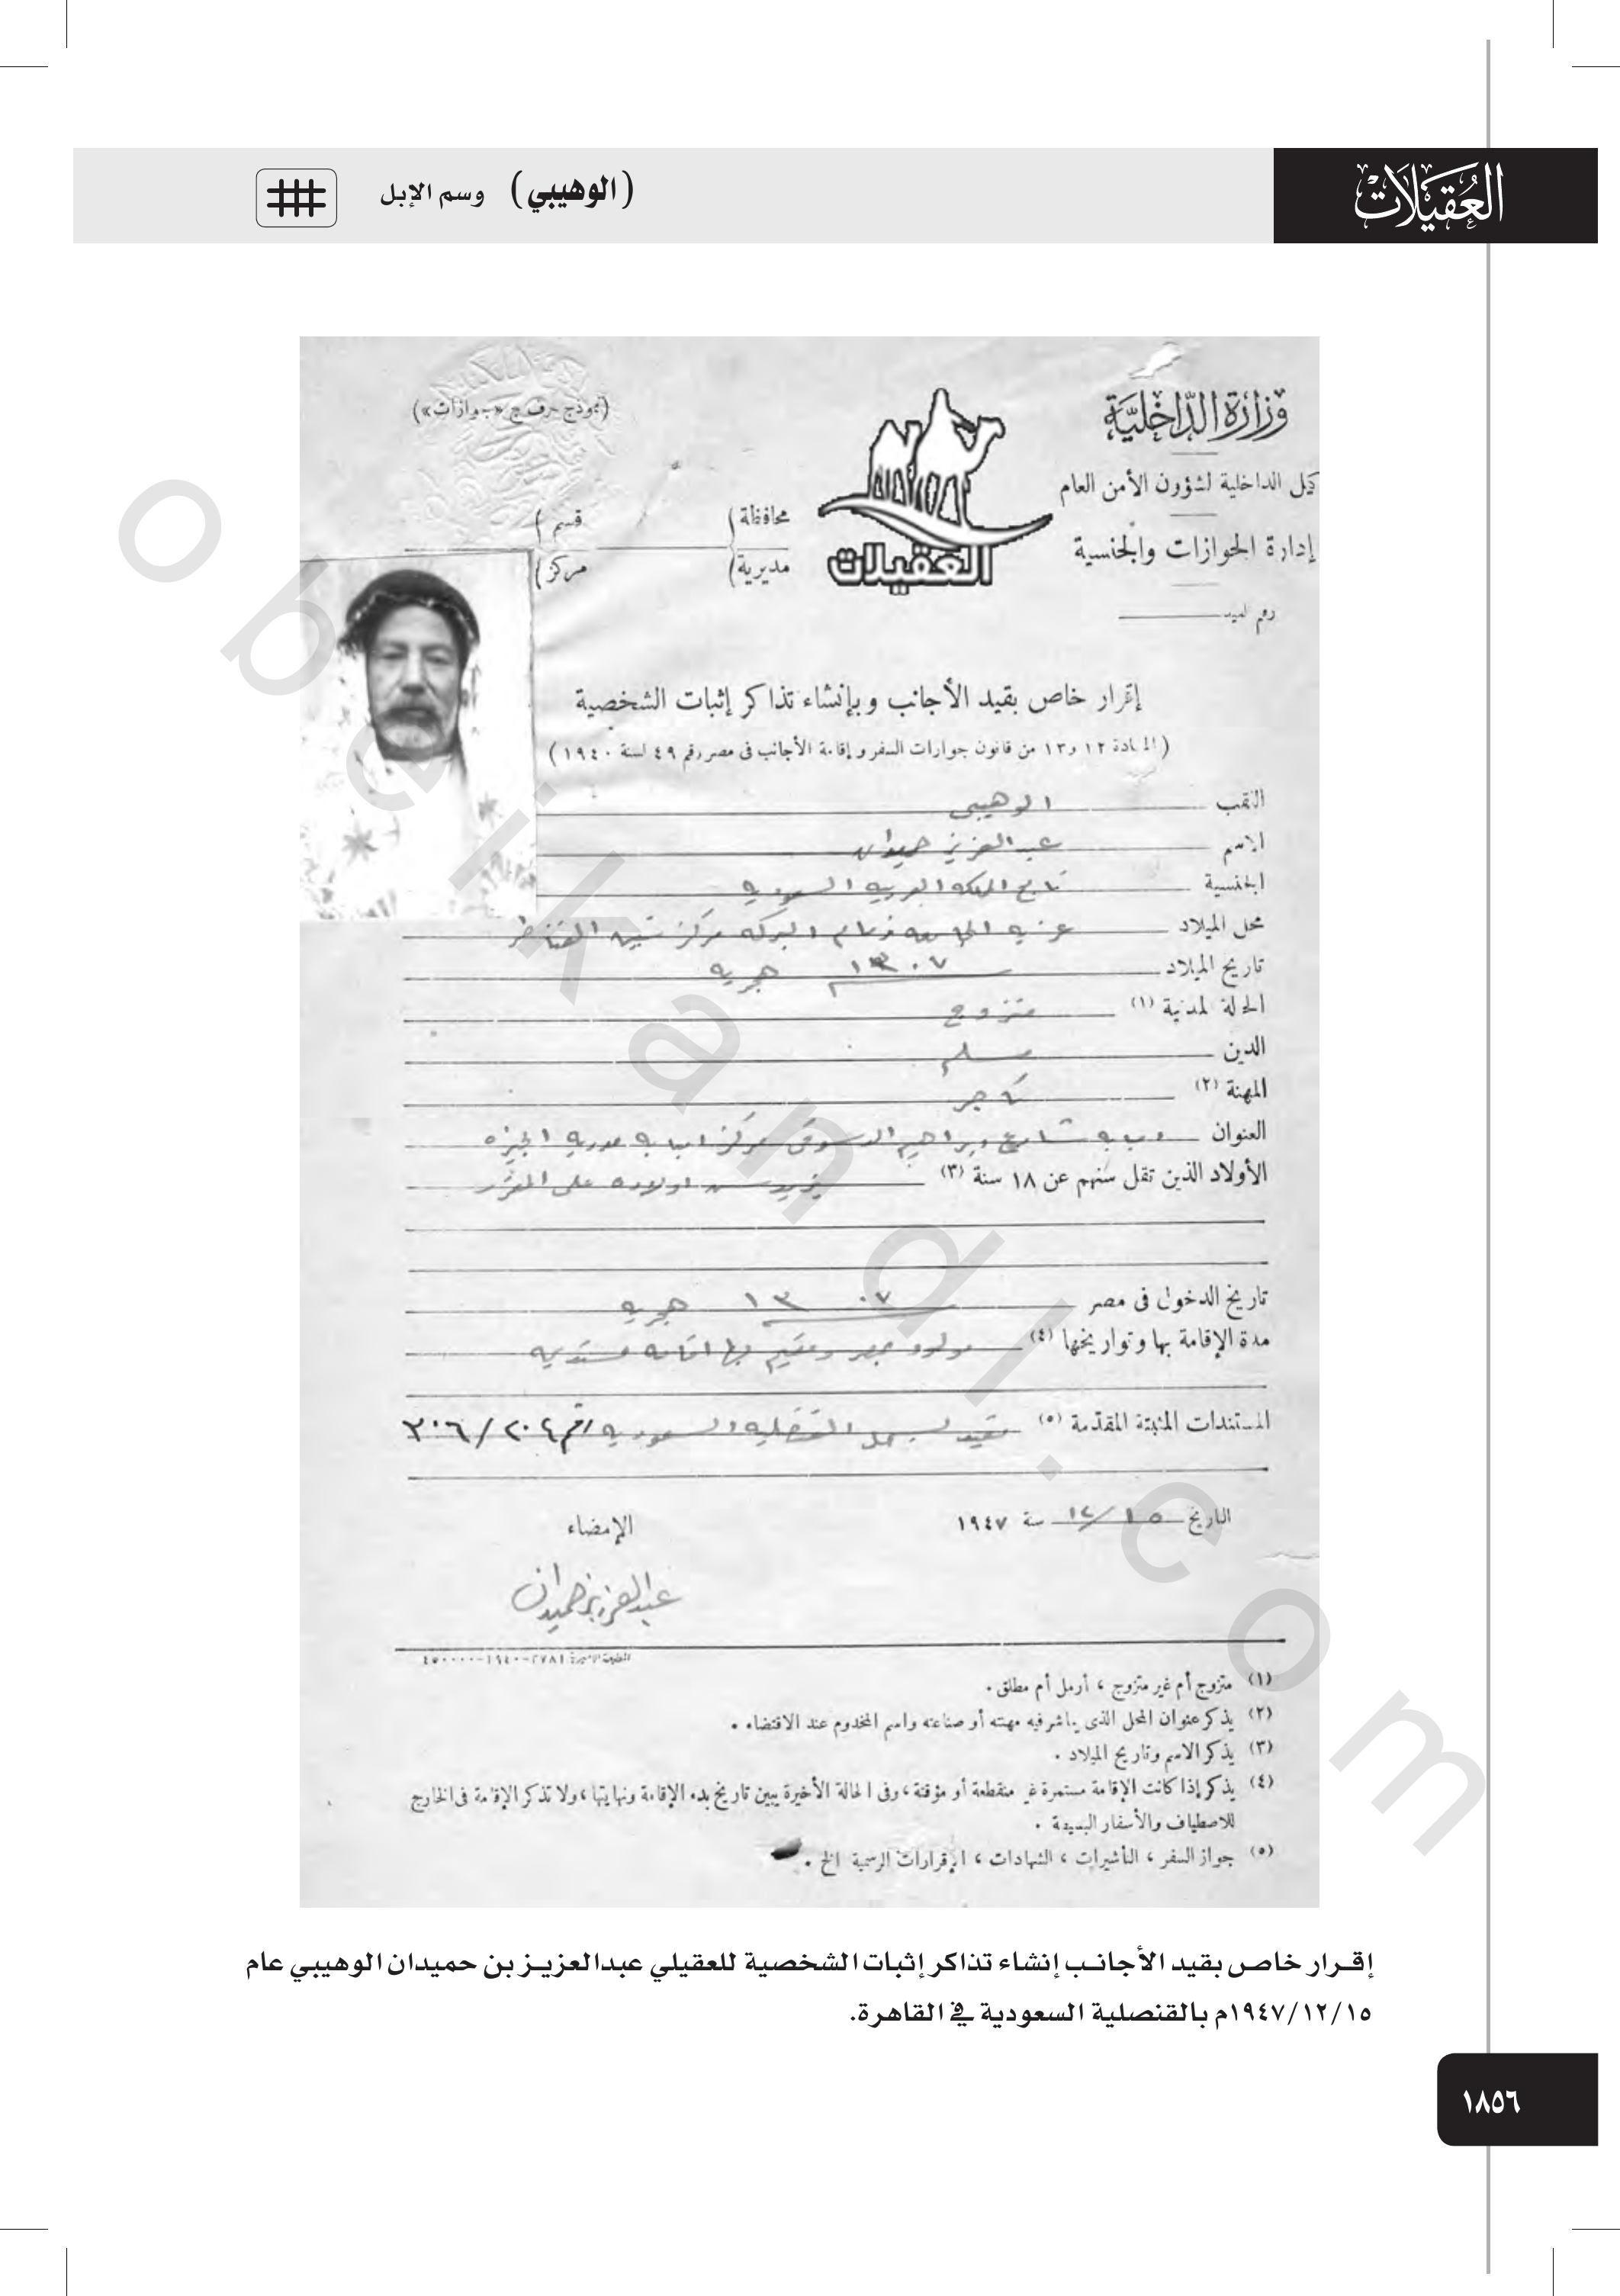 العُقيلات
(الوهيبي) وسم الإبل
وزارة الداخلية
(نموذج حرف ج «جوازات»)
وكيل الداخلية لشؤون الأمن العام
إدارة الجوازات والجنسية
محافظة قسم
مديرية مركز
العقيلات
رقم القيد
إقرار خاص بقيد الأجانب وبإنشاء تذاكر إثبات الشخصية
(المادة ١٢ و١٣ من قانون جوازات السفر وإقامة الأجانب فى مصر رقم ٤٩ لسنة ١٩٤٠)
اللقب الوهيبى
الاسم عبد العزيز حميدان
الجنسية تابع المملكه العربيه السعوديه
محل الميلاد عزبه الجامعه زمام البركه مركز شبين القناطر
تاريخ الميلاد ١٣٠٧ هجريه
الحالة المدنية (١) متزوج
الدين مسلم
المهنة (٢) تاجر
العنوان امبابه شارع ابراهيم الدسوقى مركز امبابه مديريه الجيزه
الأولاد الذين تقل سنهم عن ١٨ سنة (٣) اولاده على
تاريخ الدخول فى مصر ١٣٠٧ هجريه
مدة الإقامة بها وتواريخها (٤) مولود بمصر ومقيم بها اقامه مستديمه
المستندات المثبتة المقدّمة (٥) مقيد بسجل القنصليه السعوديه رقم ٢٠٤/٣٠٦
التاريخ ١٥/١٢ سنة ١٩٤٧
الإمضاء
عبدالعزيز حميدان
(١) متزوج أم غير متزوج ، أرمل أم مطلق .
(٢) يذكر عنوان المحل الذى يباشر فيه مهنته أو صناعته واسم المخدوم عند الاقتضاء .
(٣) يذكر الاسم وتاريخ الميلاد .
(٤) يذكر إذا كانت الإقامة مستمرة غير منقطعة أو مؤقتة ، وفى الحالة الأخيرة يبين تاريخ بدء الإقامة ونهايتها ، ولا تذكر الإقامة فى الخارج
للاصطياف والأسفار البسيطة .
(٥) جواز السفر ، التأشيرات ، الشهادات ، الإقرارات الرسمية الخ .
إقرار خاص بقيد الأجانب إنشاء تذاكر إثبات الشخصية للعقيلي عبدالعزيز بن حميدان الوهيبي عام
١٩٤٧/١٢/١٥م بالقنصلية السعودية في القاهرة.
١٨٥٦
obeikandl.com